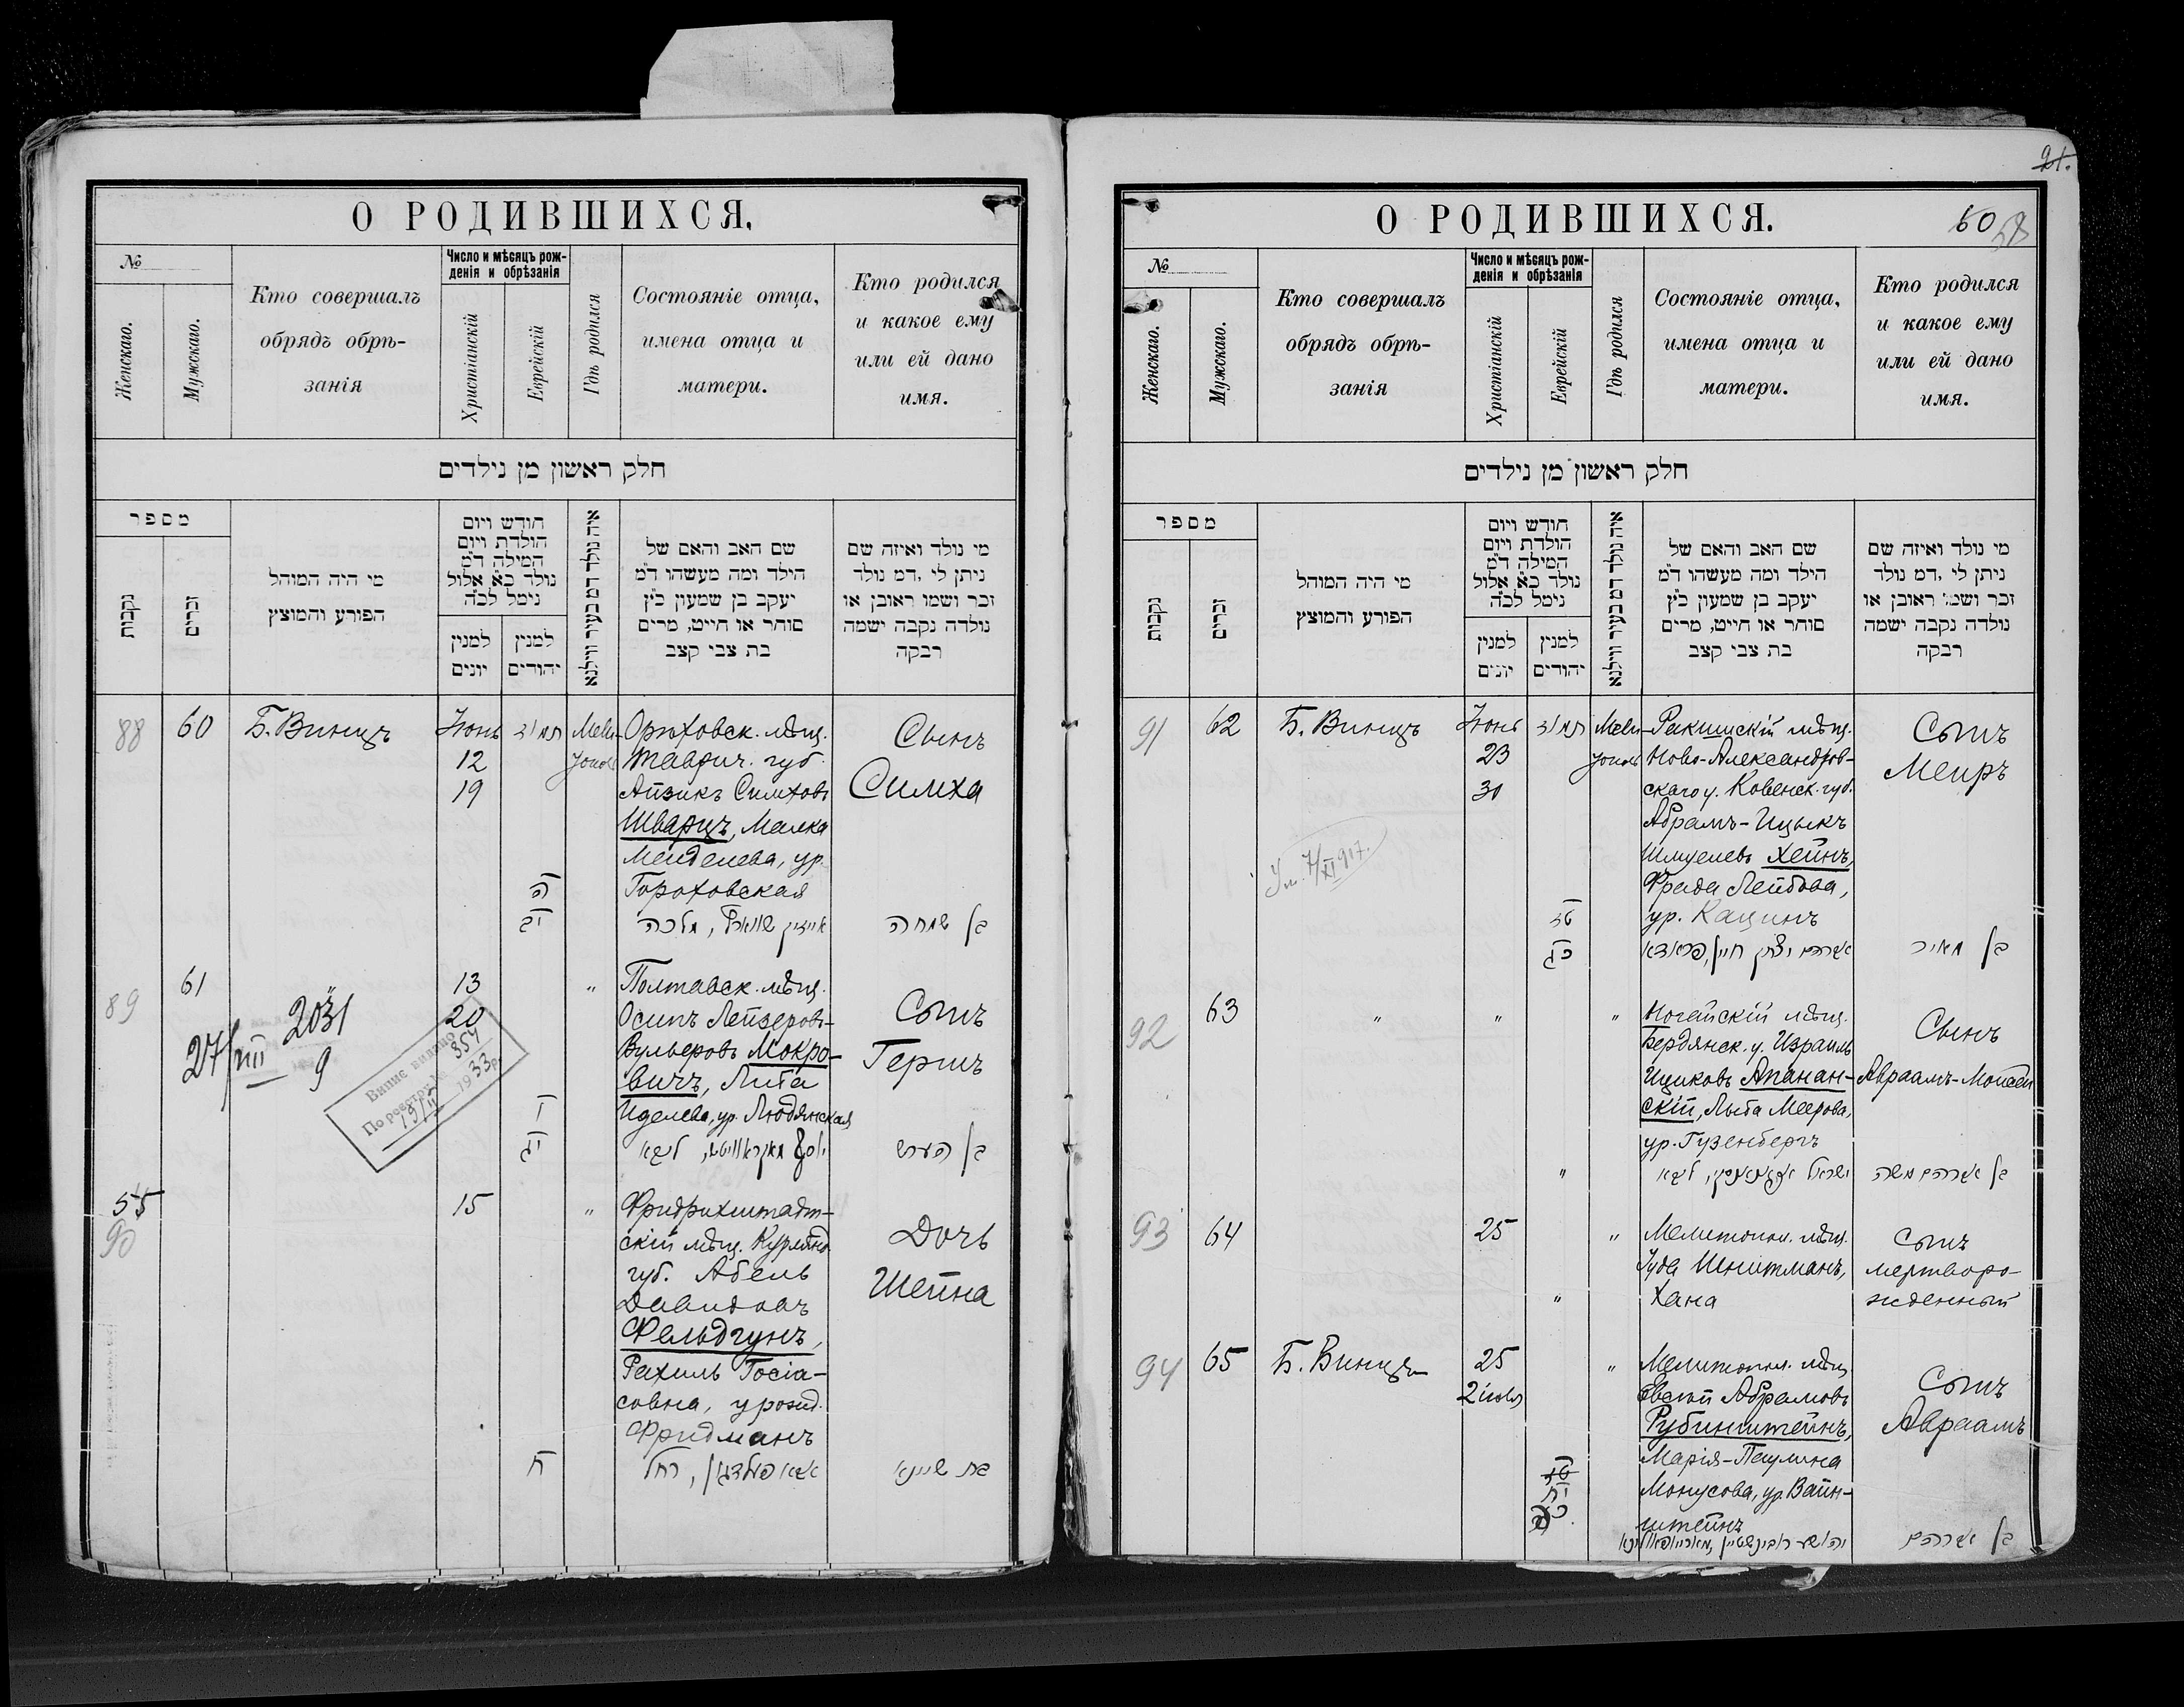 О РОДИВШИХСЯ.
№
Женскаго.
Мужскаго.
Кто совершалъ
обрядъ обрѣ-
занія
Число и мѣсяцъ рож-
денія и обрѣзанія
Христіанскій
Еврейскій
Гдѣ родился
Состояніе отца,
имена отца и
матери.
Кто родился
и какое ему
или ей дано
имя.
חלק ראשון מן נילדים
מספר
נקבות
זכרים
מי היה המוהל
הפורע והמוצץ
חודש ויום
הולדת ויום
המילה ד"מ
נולד כ"א אלול
נימל לכ"ה
למנין
יונים
למנין
יהודים
איה נולד דמ בעיר ווילנא
שם האב והאם של
הילד ומה מעשהו ד"מ
יעקב בן שמעון כ"ץ
סוחר או חייט, מרים
בת צבי קצב
מי נולד ואיזה שם
ניתן לי ,דמ נולד
זכר ושמו ראובן או
נולדה נקבה ישמה
רבקה
88
60
Б. Винцъ
Іюнь
12
19
תמוז
ה
יב
Мели-
Орѣховск. мѣщ.
Таврич. губ.
Айзикъ Симховъ
Шварцъ, Малка
Менделева, ур.
Гороховская
אייזיק שווארץ, מלכה
Сынъ
Симха
בן שמחה
89
61
13
20
ו
יג
"
Полтавск. мѣщ.
Осипъ Лейзеровъ-
Вульфовъ Мокро-
вичъ, Либа
Иделева, ур. Людянская
יוסף מאקראוויטש, ליבא
Сынъ
Гершъ
בן הערש
2031
27/VIII
9
Випис видано
По реєстром № 354
19/II 1933 р.
55
90
15
ח
"
Фридрихштадт-
скій мѣщ. Курлянд.
губ. Абель
Давидовъ
Фельдгунъ,
Рахиль Іосіа-
совна, урожд.
Фридманъ
אבא פעלדגון, רחל
Дочь
Шейна
בת שיינא
21.
60
58
О РОДИВШИХСЯ.
№
Женскаго.
Мужскаго.
Кто совершалъ
обрядъ обрѣ-
занія
Число и мѣсяцъ рож-
денія и обрѣзанія
Христіанскій
Еврейскій
Гдѣ родился
Состояніе отца,
имена отца и
матери.
Кто родился
и какое ему
или ей дано
имя.
חלק ראשון מן נילדים
מספר
נקבות
זכרים
מי היה המוהל
הפורע והמוצץ
חודש ויום
הולדת ויום
המילה ד"מ
נולד כ"א אלול
נימל לכ"ה
למנין
יונים
למנין
יהודים
איה נולד דמ בעיר ווילנא
שם האב והאם של
הילד ומה מעשהו ד"מ
יעקב בן שמעון כ"ץ
סוחר או חייט, מרים
בת צבי קצב
מי נולד ואיזה שם
ניתן לי ,דמ נולד
זכר ושמו ראובן או
נולדה נקבה ישמה
רבקה
91
62
Б. Винцъ
Іюнь
23
30
תמוז
טז
כג
Мели-
Ракишскій мѣщ.
Ново-Александров-
скаго у. Ковенск. губ.
Абрамъ-Ицыкъ
Шмуелевъ Хейнъ,
Фрада Лейбова,
ур. Кацинъ
אברהם יצחק חיין, פראדא
Сынъ
Меиръ
בן מאיר
7/XI 917.
92
63
"
"
"
"
Ногайскій мѣщ.
Бердянск. у. Израиль
Ициковъ Апанан-
скій, Лыба Меерова,
ур. Гузенбергъ
Сынъ
Авраамъ-Моисей
בן אברהם משה
93
64
25
"
"
Мелитопол. мѣщ.
Іуда Шнитманъ,
Хана
Сынъ
мертворо-
жденный
94
65
Б. Винцъ
25
2 іюля
יח
"
Мелитопол. мѣщ.
Евсѣй Абрамовъ
Рубинштейнъ,
Марія-Паулина
Монусова, ур. Вайн-
штейнъ
Сынъ
Авраамъ
בן אברהם